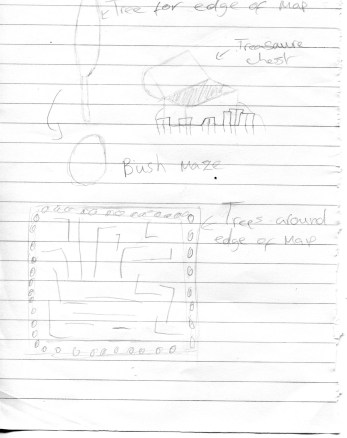 Tree for edge of Map
Treasure
chest
Bush Maze
Trees around
edge of Map